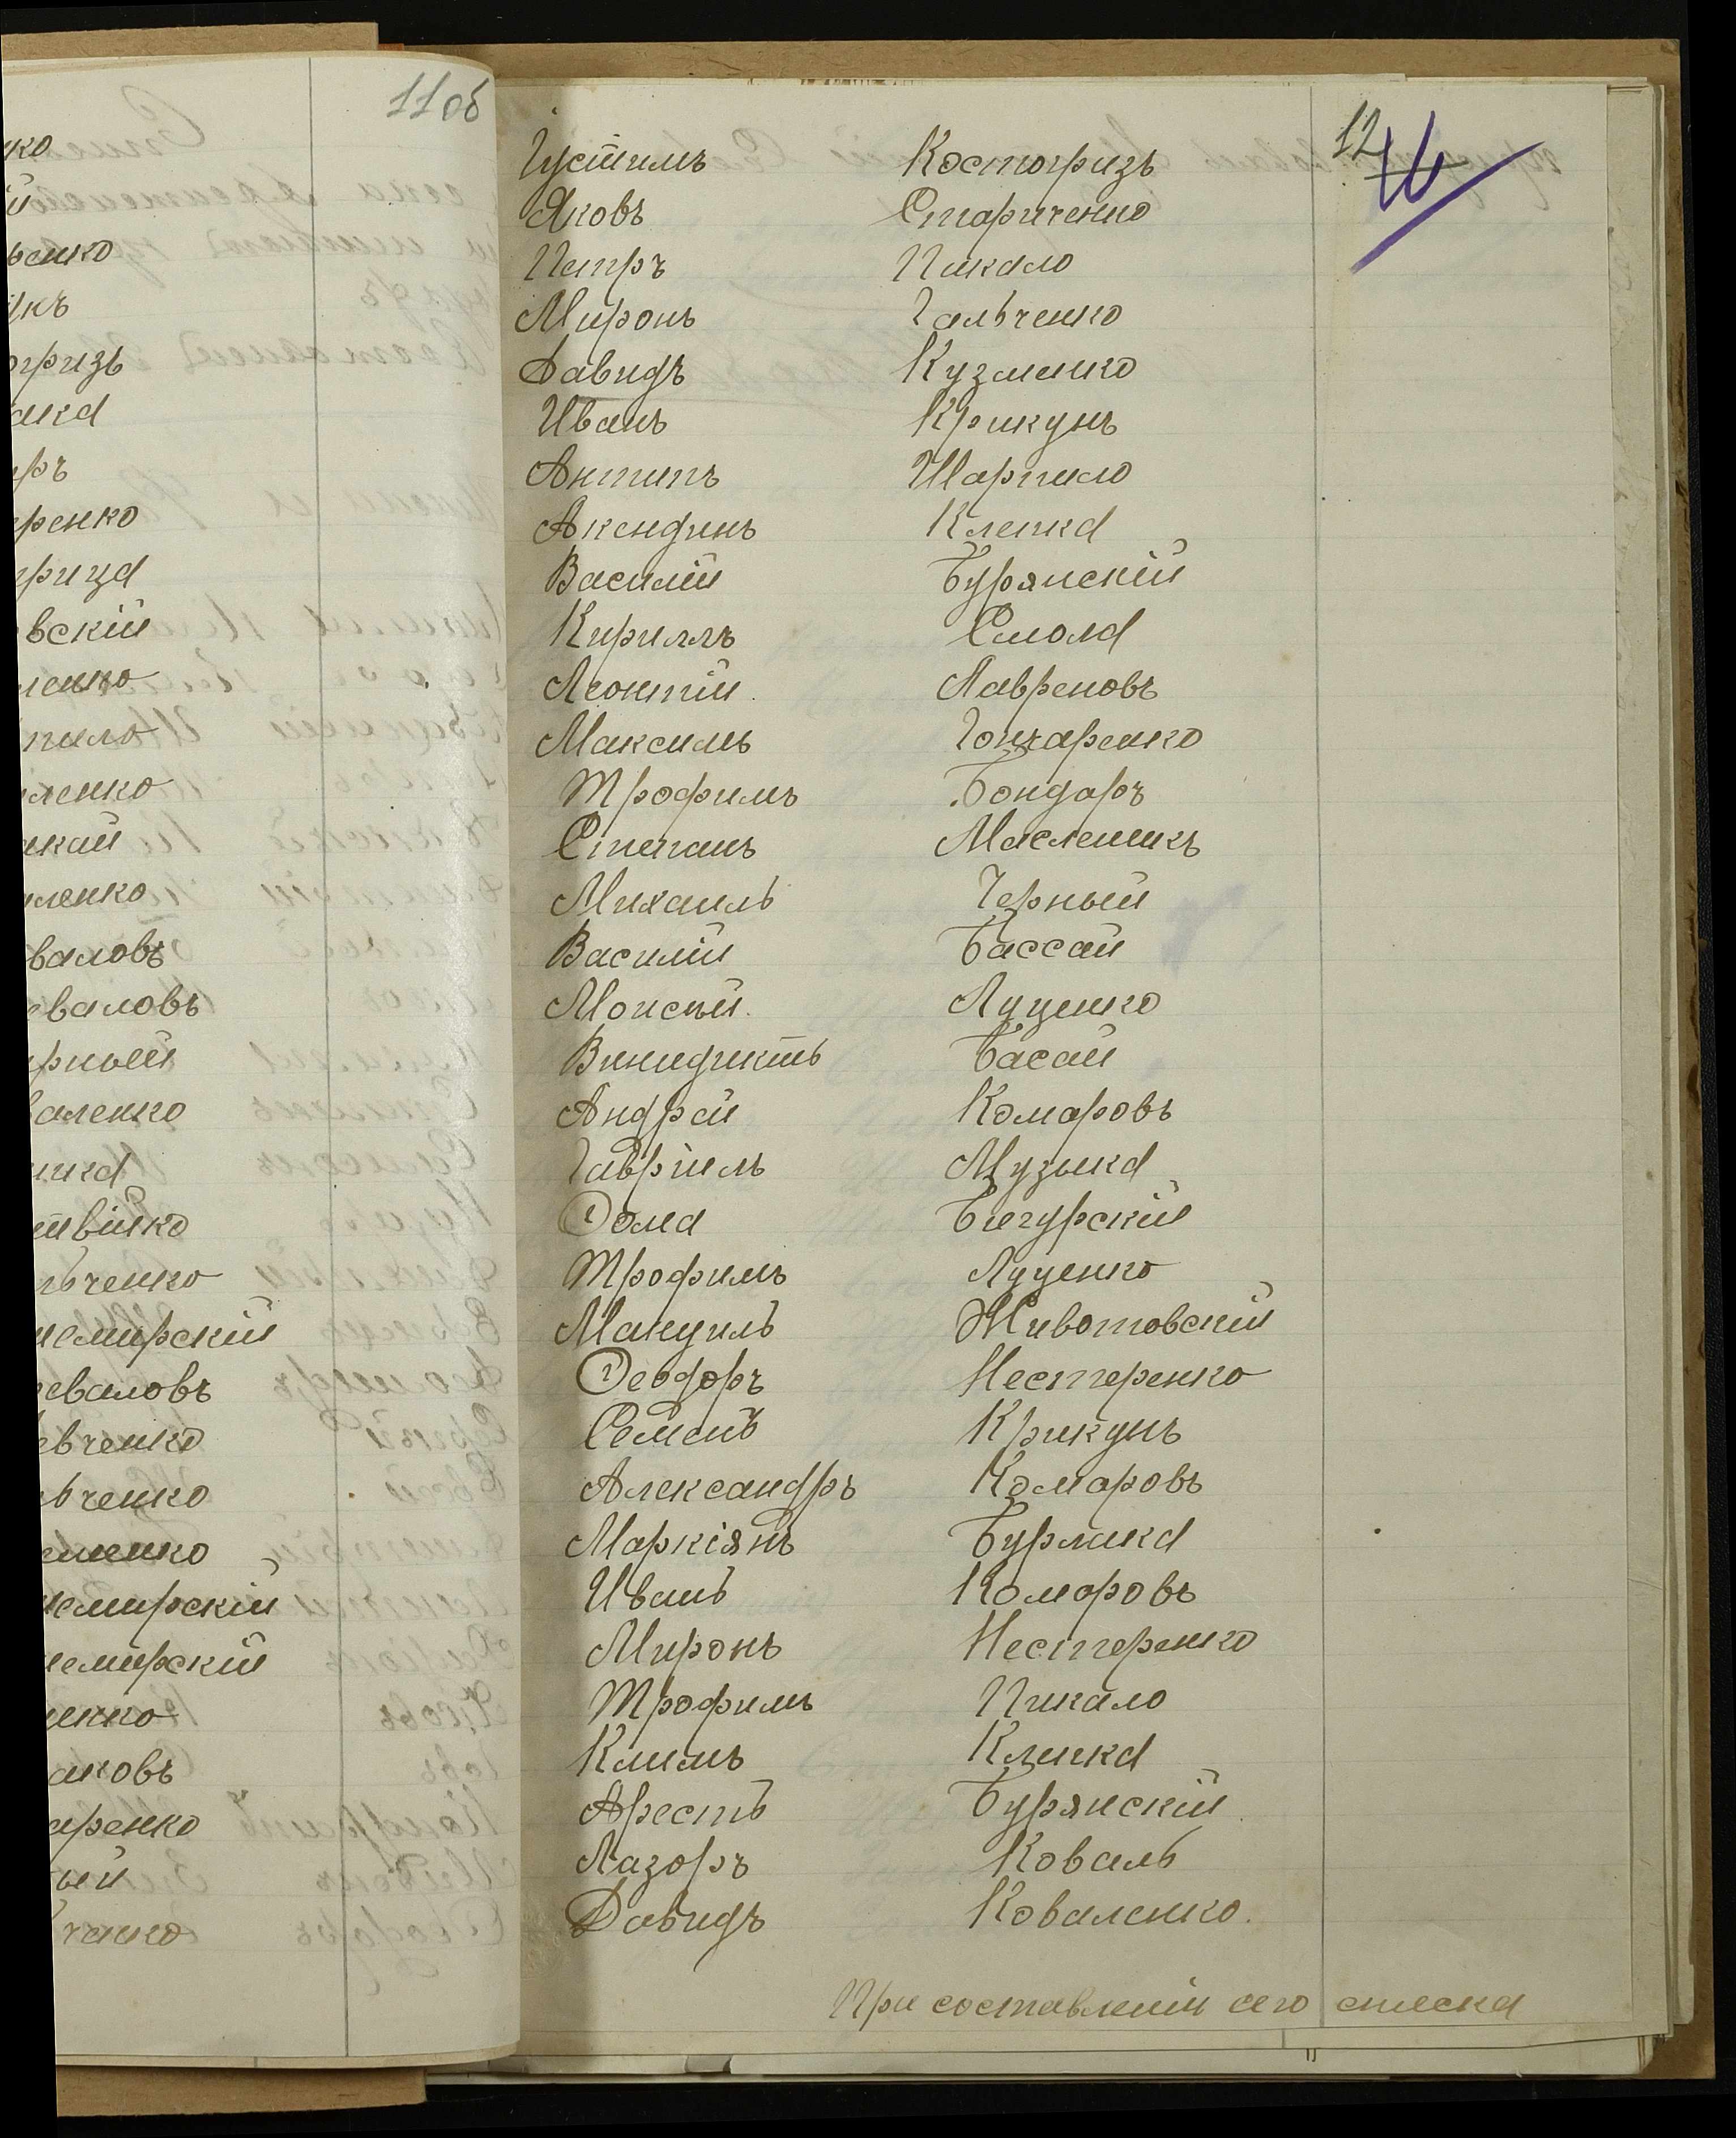 11 об
ко
й
ренко
рица
вскій
ленко
пило
ленко
кай
ленко
валовъ
еваловъ
рный
валенко
енемирскій
еваловъ
вченко
вченко
еменко
немирскій
немирскій
енко
аковъ
аренко
ый
ченко
12
Іустимъ Костогризъ
Яковъ Стариченко
Петръ Пикало
Миронъ Гальченко
Давидъ Кузменко
Иванъ Крикунъ
Антипъ Шарпило
Акендинъ Клепка
Василій Бурянскій
Кириллъ Смола
Леонтій Лавреновъ
Максимъ Гончаренко
Трофимъ Бондаръ
Степанъ Масленикъ
Михаилъ Черный
Василій Бассай
Моисѣй Луценко
Винидиктъ Басай
Андрей Комаровъ
Гавріилъ Музыка
Ѳома Бигурскій
Трофимъ Луценко
Мануилъ Животовскій
Ѳеодоръ Нестеренко
Семенъ Крикунъ
Александръ Комаровъ
Маркіянъ Бурлака
Иванъ Комаровъ
Миронъ Нестеренко
Трофимъ Пикало
Климъ Клепка
Арестъ Бурянскій
Лазоръ Коваль
Давидъ Коваленко.
При составленіи сего списка